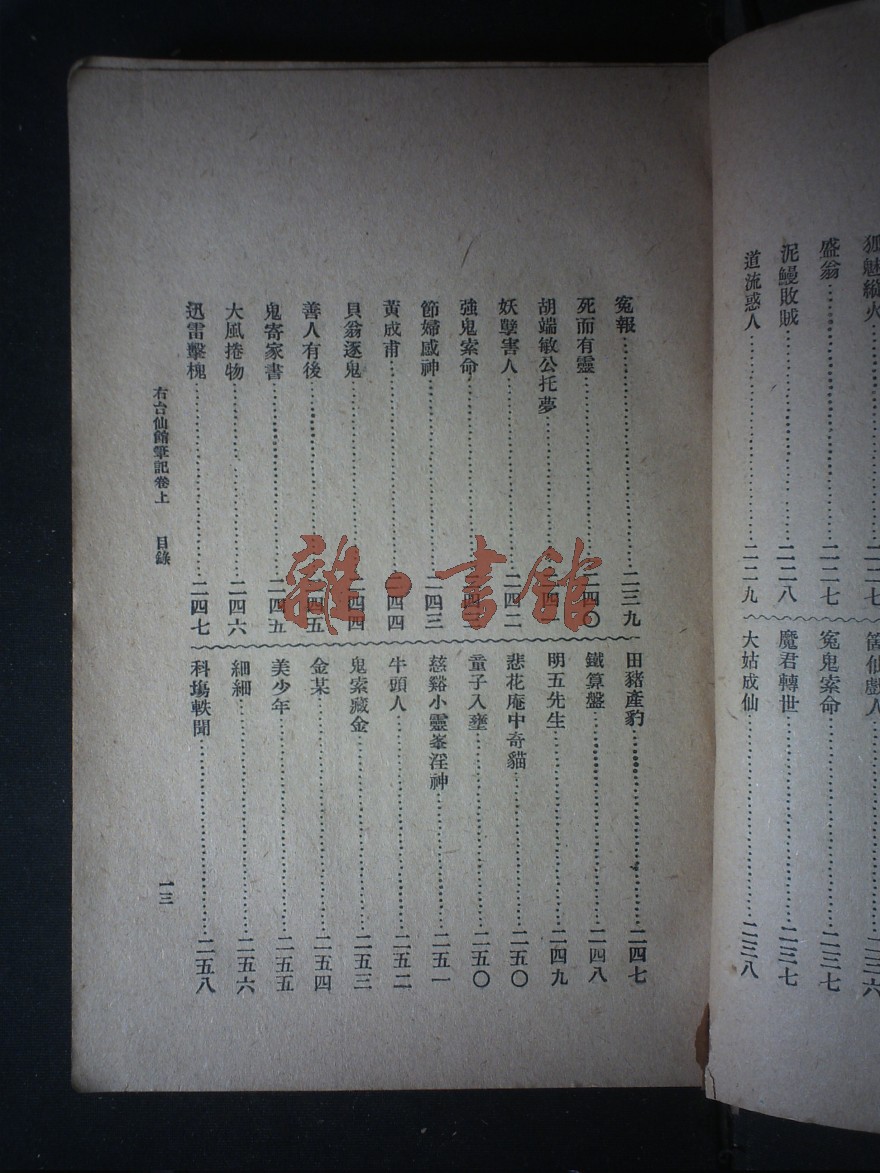 狐魅縱火……二二七
盛翁……二二七
泥鰻敗賊……二二八
道流惑人……二二九
仙戲人……二三六
冤鬼索命……二三七
魔君轉世……二三七
大姑成仙……二三八
冤報……二三九
死而有靈……二四〇
胡端敏公托夢……二四一
妖孽害人……二四二
強鬼索命……二四三
節婦感神……二四三
黃成甫……二四四
貝翁逐鬼……二四四
善人有後……二四五
鬼寄家書……二四五
大風捲物……二四六
迅雷擊槐……二四七
田豬產豹……二四七
鐵算盤……二四八
明五先生……二四九
悲花庵中奇貓……二五〇
童子入甕……二五〇
慈谿小靈峯淫神……二五一
牛頭人……二五二
鬼索藏金……二五三
金某……二五四
美少年……二五五
細細……二五六
科場軼聞……二五八
右台仙館筆記卷上 目錄
一三
雜·書館